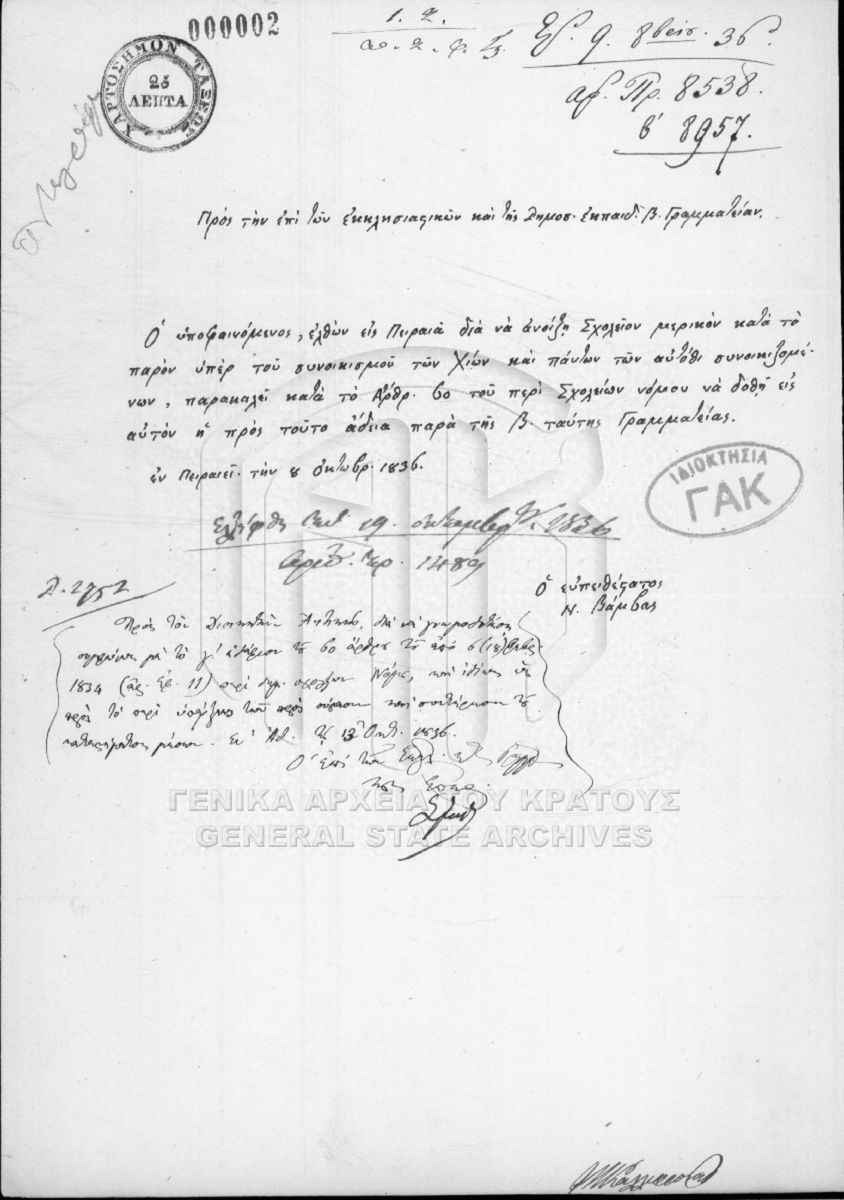 000002
ΧΑΡΤΟΣΗΜΟΝ ΤΑΞΕΩΣ
25
ΛΕΠΤΑ
1. 2.
9. 8βρίου. 36.
αρ. Πρ. 8538.
β' 8957.
Πρὸς τὴν ἐπὶ τῶν ἐκκλησιαστικῶν καὶ τῆς Δημοσ. ἐκπαιδ. Β. Γραμματείαν.
Ὁ ὑποφαινόμενος, ἐλθὼν εἰς Πειραιᾶ διὰ νὰ ἀνοίξῃ Σχολεῖον μερικὸν κατὰ τὸ
παρὸν ὑπὲρ τοῦ συνοικισμοῦ τῶν Χίων καὶ πάντων τῶν αὐτόθι συνοικιζομέ-
νων, παρακαλεῖ κατὰ τὸ Ἄρθρ. 60 τοῦ περὶ Σχολείων νόμου νὰ δοθῇ εἰς
αὐτὸν ἡ πρὸς τοῦτο ἄδεια παρὰ τῆς Β. ταύτης Γραμματείας.
ἐν Πειραιεῖ. τὴν 8 ὀκτωβρ. 1836.
ΙΔΙΟΚΤΗΣΙΑ
ΓΑΚ
Ἐλήφθη 19. 1836
1489
Ὁ εὐπειθέστατος
Ν. Βάμβας
Δ. 2752
Πρὸς τὸν Διοικητὴν Ἀττικῆς, διὰ νὰ γνωμοδοτήσῃ
συμφώνως μὲ τὸ γ' ἐδάφιον τοῦ 60 ἄρθρου τοῦ ἀπὸ 6 (18) Φεβρ.
1834 (ἀρ. 11) περὶ δημ. σχολείων Νόμου, καὶ ἰδίως ὡς
πρὸς τὸ περὶ ὑπάρξεως τῶν πρὸς σύστασιν καὶ συντήρησιν τοῦ
καταστήματος μέσων. Ἐν Ἀθ. τῇ 13 Ὀκτ. 1836.
Ὁ ἐπὶ τῶν Ἐκκλ.
ΓΕΝΙΚΑ ΑΡΧΕΙΑ ΤΟΥ ΚΡΑΤΟΥΣ
GENERAL STATE ARCHIVES